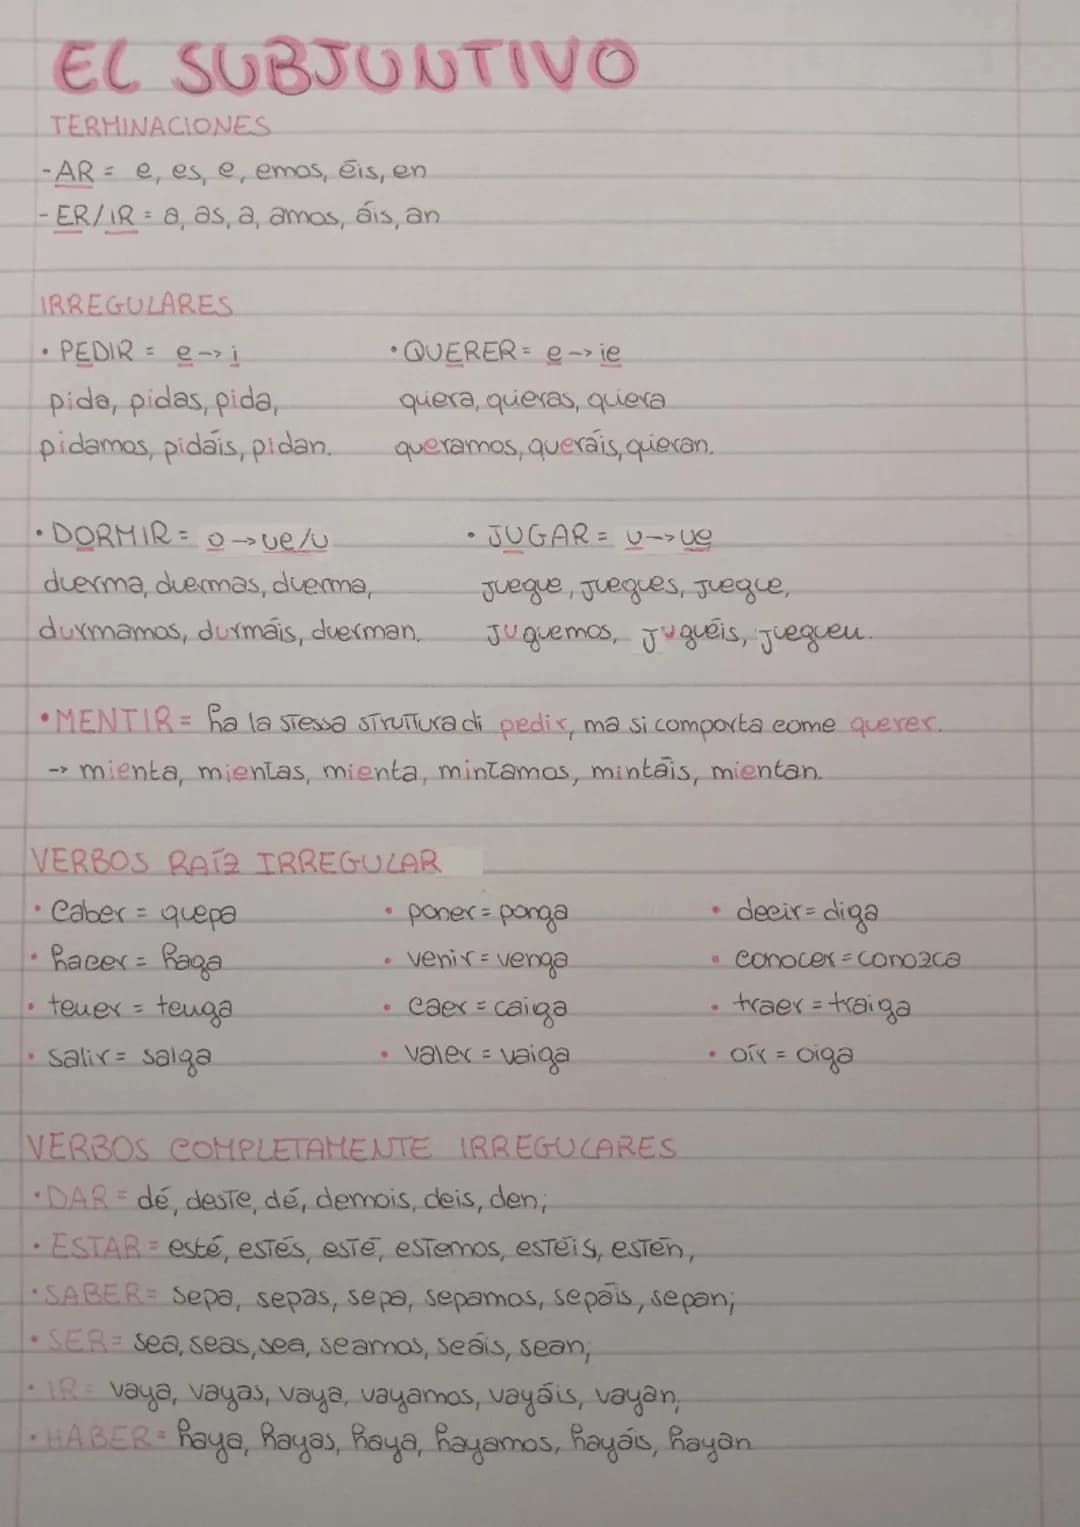 EL SUBJUNTIVO
TERMINACIONES
-AR = e, es, e, emos, éis, en
- ER/IR = a, as, a, amos, áis, an
IRREGULARES
• PEDIR = e -> i
pida, pidas, pida,
pidamos, pidáis, pidan.
• QUERER = e -> ie
quiera, quieras, quiera
queramos, queráis, quieran.
• DORMIR = o → ue/u
duerma, duermas, duerma,
durmamos, durmáis, duerman.
• JUGAR = u -> ue
juegue, juegues, juegue,
juguemos, juguéis, jueguen.
• MENTIR = ha la stessa struttura di pedir, ma si comporta come querer.
-> mienta, mientas, mienta, mintamos, mintáis, mientan.
VERBOS RAÍZ IRREGULAR
• caber = quepa • poner = ponga • decir = diga
• hacer = haga • venir = venga • conocer = conozca
• tener = tenga • caer = caiga • traer = traiga
• salir = salga • valer = vaiga • oír = oiga
VERBOS COMPLETAMENTE IRREGULARES
• DAR = dé, deste, dé, demois, deis, den;
• ESTAR = esté, estés, esté, estemos, estéis, estén,
• SABER = sepa, sepas, sepa, sepamos, sepáis, sepan;
• SER = sea, seas, sea, seamos, seáis, sean;
• IR = vaya, vayas, vaya, vayamos, vayáis, vayan,
• HABER = haya, hayas, haya, hayamos, hayáis, hayan